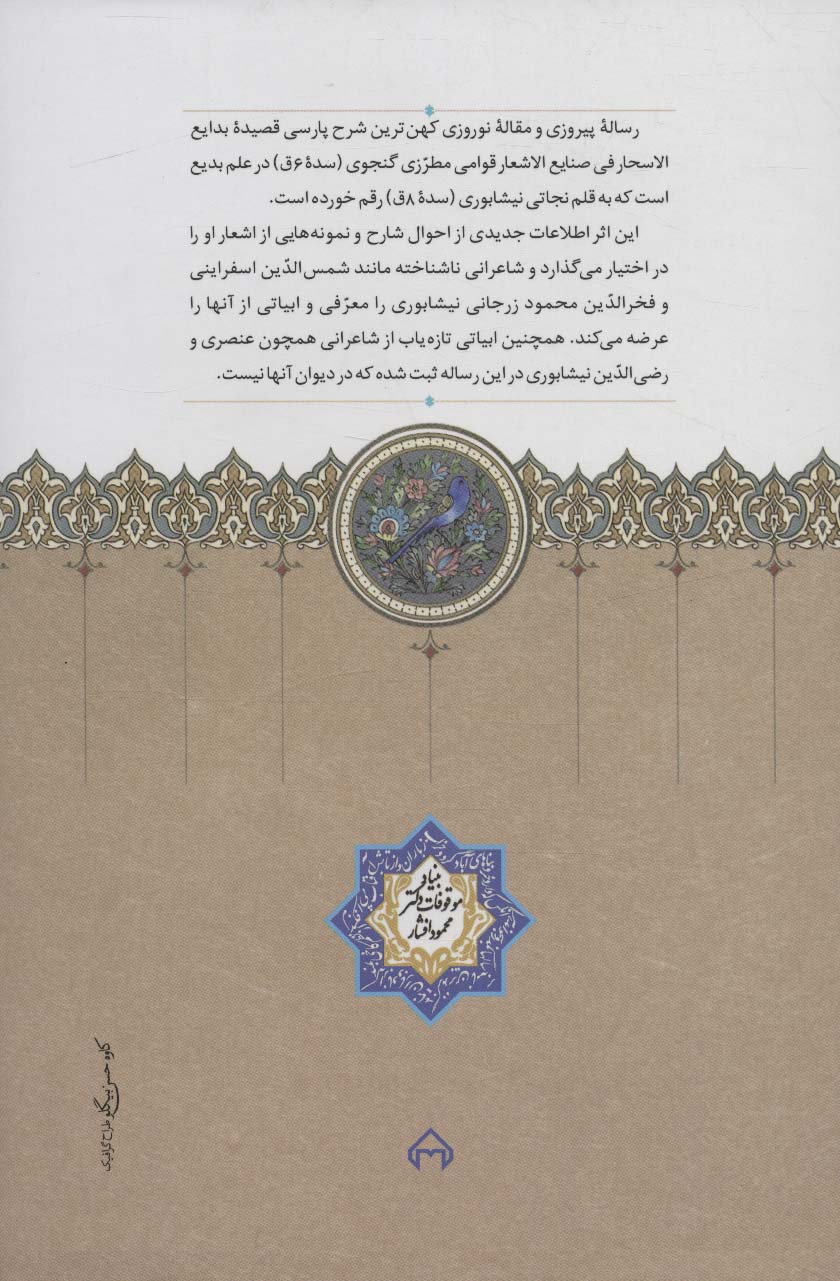 رسالهٔ پیروزی و مقالهٔ نوروزی کهن‌ترین شرح پارسی قصیدهٔ بدایع
الاسحار فی صنایع الاشعار قوامی مطرّزی گنجوی (سدهٔ ۶ق) در علم بدیع
است که به قلم نجاتی نیشابوری (سدهٔ ۸ق) رقم خورده است.
این اثر اطلاعات جدیدی از احوال شارح و نمونه‌هایی از اشعار او را
در اختیار می‌گذارد و شاعرانی ناشناخته مانند شمس‌الدّین اسفراینی
و فخرالدّین محمود زرجانی نیشابوری را معرّفی و ابیاتی از آنها را
عرضه می‌کند. همچنین ابیاتی تازه‌یاب از شاعرانی همچون عنصری و
رضی‌الدّین نیشابوری در این رساله ثبت شده که در دیوان آنها نیست.
بنیاد
موقوفات دکتر
محمود افشار
کاوه حسن‌بیگلو طراح گرافیک